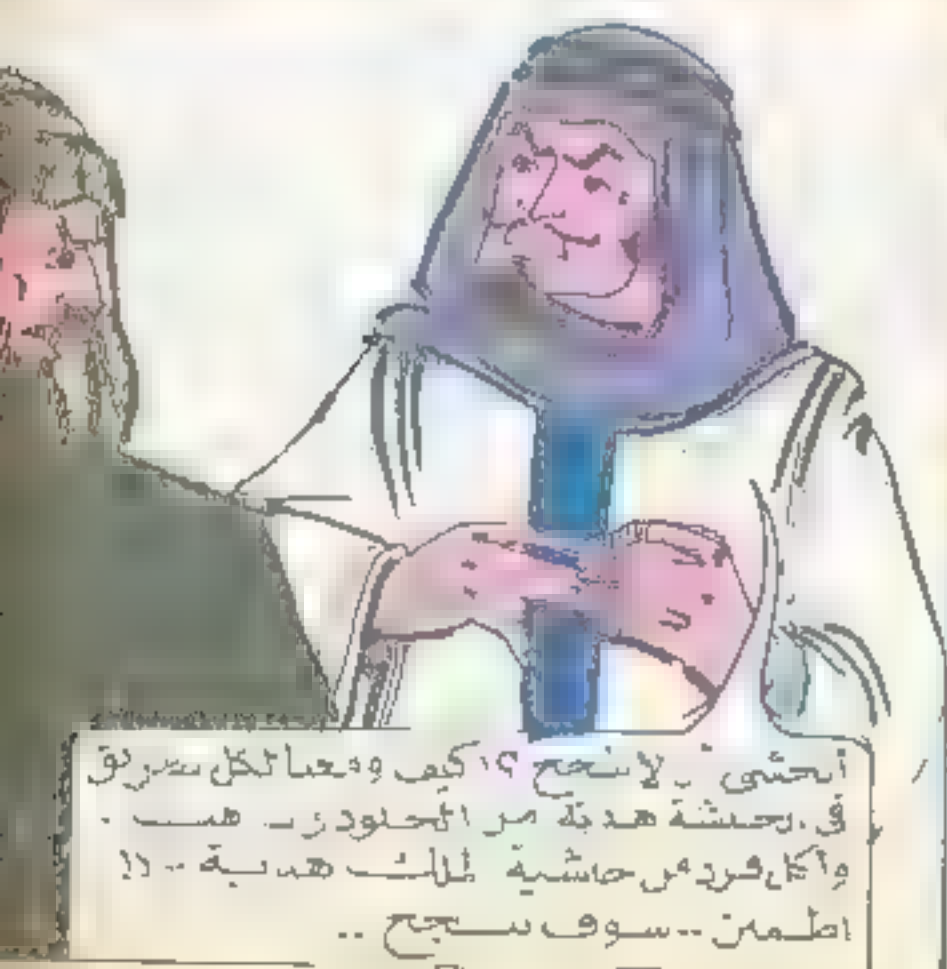 أتخشى .. لا ننجح ؟! كيف ومعنا لكل بطريق
في الحبشة هدية من الجلود و ..
ولكل فرد من حاشية الملك هدية .. !!
اطمئن .. سوف ننجح ..